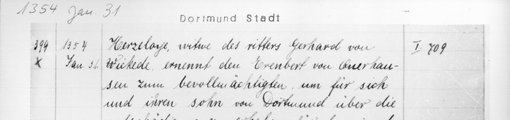 1354 Jan. 31
Dortmund Stadt
394 1354 Herzeloye, witwe des ritters Gerhard von I 709
X Jan 31. Wickede, ernennt den Erenbert von
sen zum bevollmächtigten, um für sich
und ihren sohn von Dortmund über die